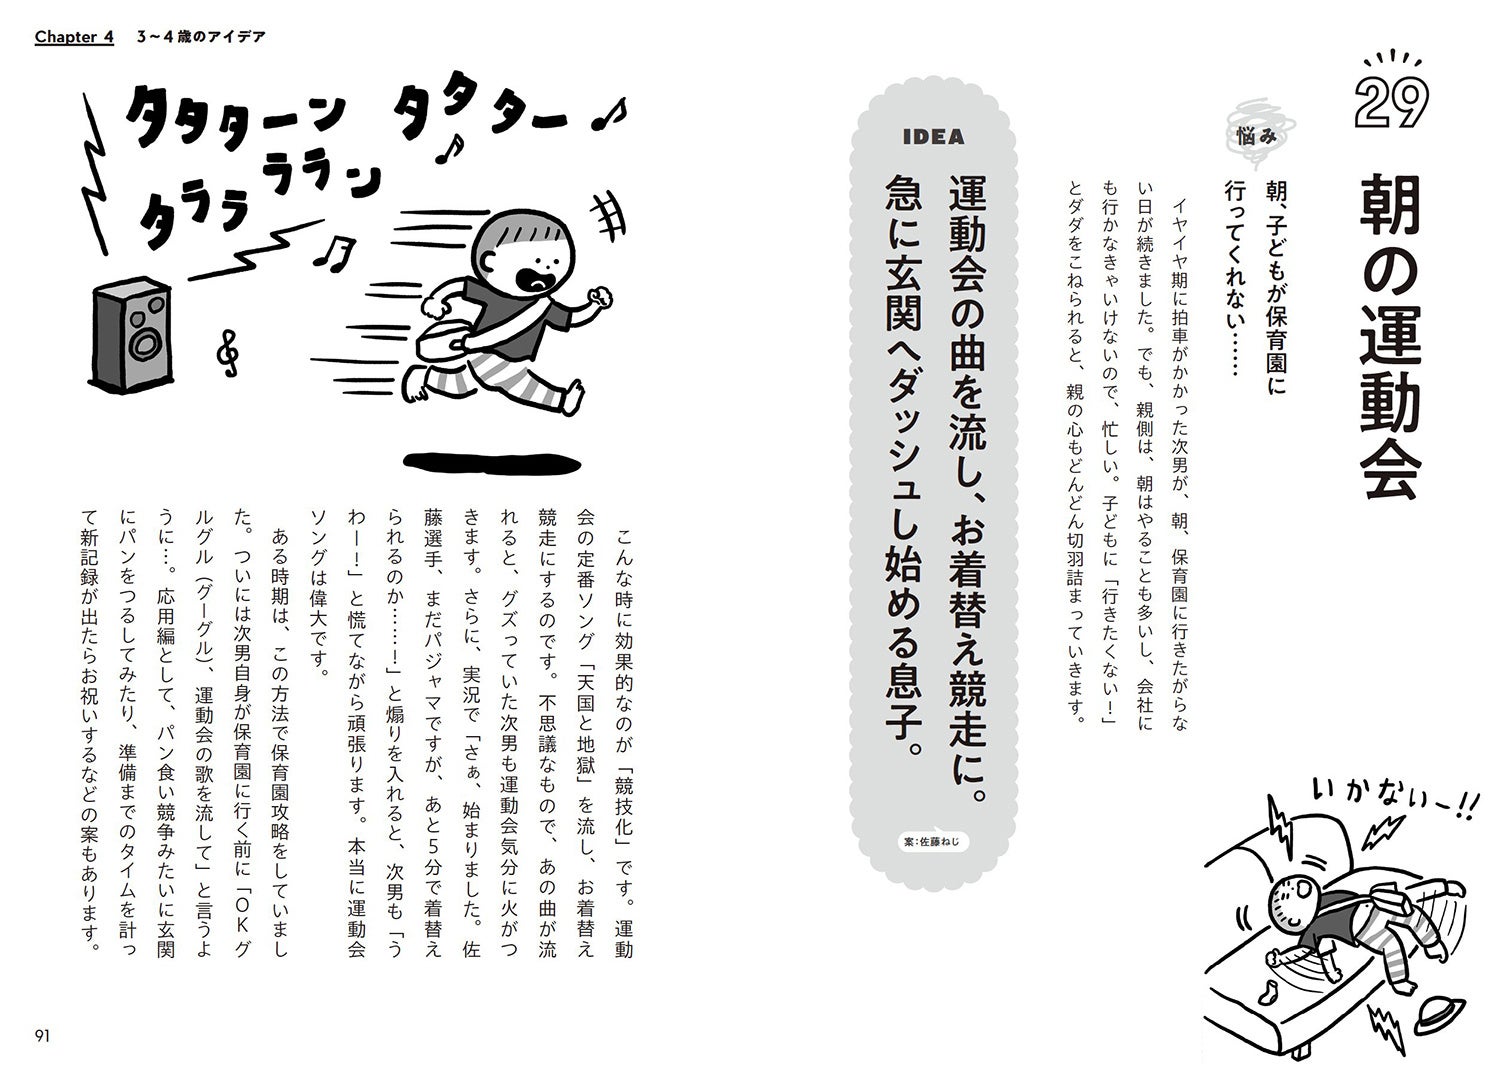 Chapter 4 3～4歳のアイデア
29
朝の運動会
悩み
朝、子どもが保育園に
行ってくれない……
イヤイヤ期に拍車がかかった次男が、朝、保育園に行きたがらな
い日が続きました。でも、親側は、朝はやることも多いし、会社に
も行かなきゃいけないので、忙しい。子どもに「行きたくない！」
とダダをこねられると、親の心もどんどん切羽詰まっていきます。
いかないー!!
IDEA
運動会の曲を流し、お着替え競走に。
急に玄関へダッシュし始める息子。
案：佐藤ねじ
タタターン タタター
ラララン
タララ
こんな時に効果的なのが「競技化」です。運動
会の定番ソング「天国と地獄」を流し、お着替え
競走にするのです。不思議なもので、あの曲が流
れると、グズっていた次男も運動会気分に火がつ
きます。さらに、実況で「さぁ、始まりました。佐
藤選手、まだパジャマですが、あと5分で着替え
られるのか……！」と煽りを入れると、次男も「う
わー！」と慌てながら頑張ります。本当に運動会
ソングは偉大です。
ある時期は、この方法で保育園攻略をしていまし
た。ついには次男自身が保育園に行く前に「OKグ
ルグル（グーグル）、運動会の歌を流して」と言うよ
うに…。応用編として、パン食い競争みたいに玄関
にパンをつるしてみたり、準備までのタイムを計っ
て新記録が出たらお祝いするなどの案もあります。
91